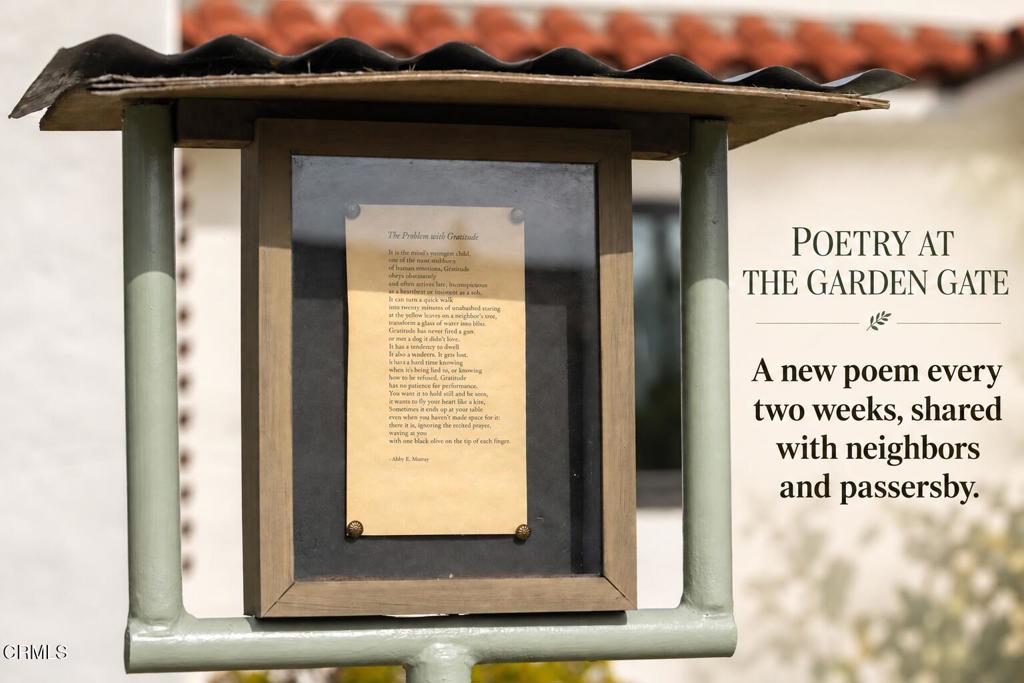 The Problem with Gratitude
It is the mind's youngest child,
one of the most stubborn
of human emotions, Gratitude
obeys obstinately
and often arrives late, inconspicuous
as a heartbeat or insistent as a sob.
It can turn a quick walk
into twenty minutes of unabashed staring
at the yellow leaves on a neighbor's tree,
transform a glass of water into bliss.
Gratitude has never fired a gun.
or met a dog it didn't love.
It has a tendency to dwell
It also a wanders. It gets lost.
it has a hard time knowing
when it's being lied to, or knowing
how to be refused. Gratitude
has no patience for performance.
You want it to hold still and be seen,
it wants to fly your heart like a kite,
Sometimes it ends up at your table
even when you haven't made space for it:
there it is, ignoring the recited prayer,
waving at you
with one black olive on the tip of each finger.
- Abby E. Murray
POETRY AT
THE GARDEN GATE
A new poem every
two weeks, shared
with neighbors
and passersby.
CRMLS